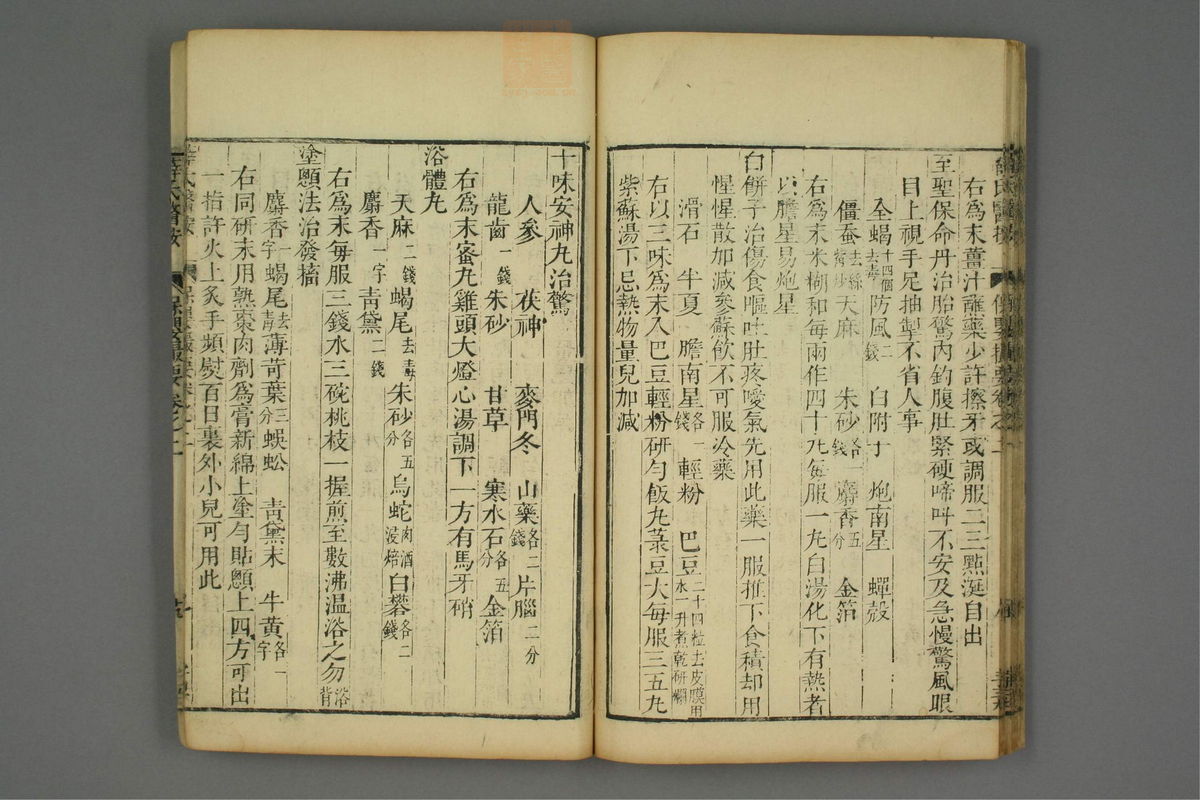 右爲末薑汁蘸藥少許擦牙或調服二三點涎自出
至聖保命丹治胎驚內釣腹肚緊硬啼呌不安及急慢驚風眼
目上視手足抽掣不省人事
全蝎十四個去毒 防風二錢 白附子 炮南星 蟬殼
僵蚕去絲嘴炒 天麻 朱砂各一錢 麝香五分 金箔
右爲末米糊和每兩作四十丸每服一丸白湯化下有熱者
以膽星易炮星
白餅子治傷食嘔吐肚疼噯氣先用此藥一服推下食積却用
惺惺散加减參蘇飮不可服冷藥
滑石 半夏 膽南星各一錢 輕粉 巴豆二十四粒去皮膜用水一升煮乾研爛
右以三味爲末入巴豆輕粉研勻飯丸菉豆大每服三五丸
紫蘇湯下忌熱物量兒加減
十味安神丸治驚
人參 茯神 麥門冬 山藥各二錢 片腦二分
龍齒一錢 朱砂 甘草 寒水石各五分 金箔
右爲末蜜丸雞頭大燈心湯調下一方有馬牙硝
浴體丸
天麻二錢 蝎尾去毒 朱砂各五分 烏蛇肉酒浸焙 白礬各二錢
麝香一字 靑黛二錢
右爲末每服三錢水三碗桃枝一握煎至數沸温浴之勿浴背
塗顖法治發搐
麝香一字 蝎尾去毒 薄苛葉三分 蜈蚣 靑黛末 牛黃各一字
右同研末用熟棗肉劑爲膏新綿上塗勻貼顖上四方可出
一指許火上炙手頻熨百日裏外小兒可用此